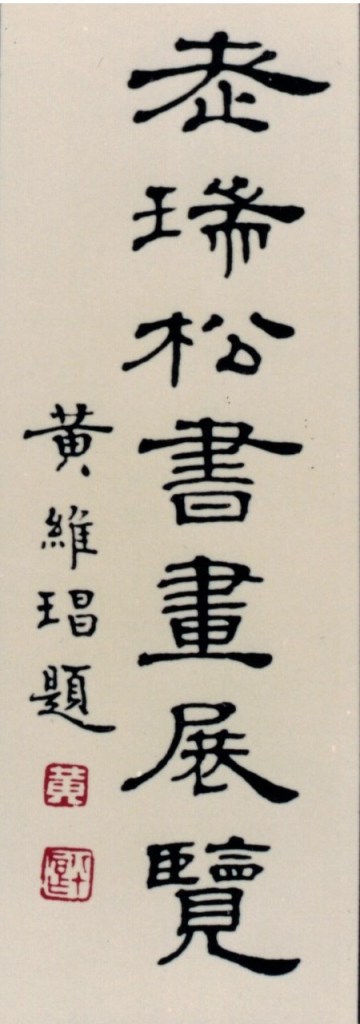 瑞松書畫展覽
黃維琩題
黃